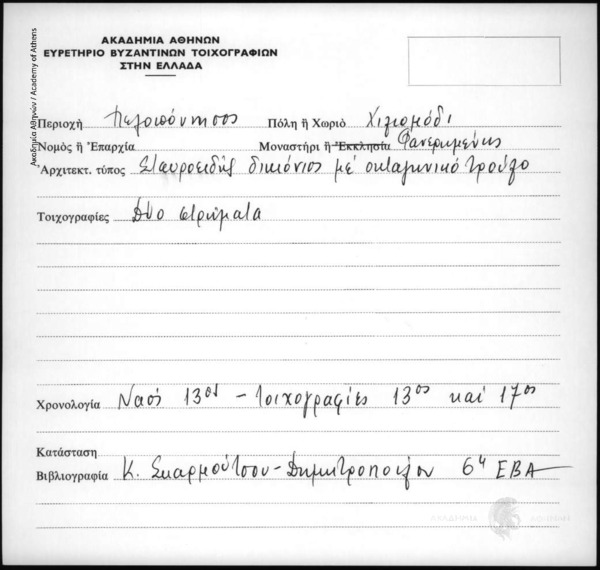 ΑΚΑΔΗΜΙΑ ΑΘΗΝΩΝ
ΕΥΡΕΤΗΡΙΟ ΒΥΖΑΝΤΙΝΩΝ ΤΟΙΧΟΓΡΑΦΙΩΝ
ΣΤΗΝ ΕΛΛΑΔΑ
Ακαδημία Αθηνών / Academy of Athens
Περιοχὴ Πελοπόννησος Πόλη ἢ Χωριὸ Χιλιομόδι
Νομὸς ἢ Ἐπαρχία Μοναστήρι ἢ Ἐκκλησία Φανερωμένης
Ἀρχιτεκτ. τύπος Σταυροειδής δικιόνιος μέ οκταγωνικό τρούλο
Τοιχογραφίες Δύο στρώματα
Χρονολογία Ναός 13ος - τοιχογραφίες 13ος καί 17ος
Κατάσταση
Βιβλιογραφία Κ. Σκαρμούτσου-Δημητροπούλου 6η ΕΒΑ
ΑΚΑΔΗΜΙΑ ΑΘΗΝΩΝ